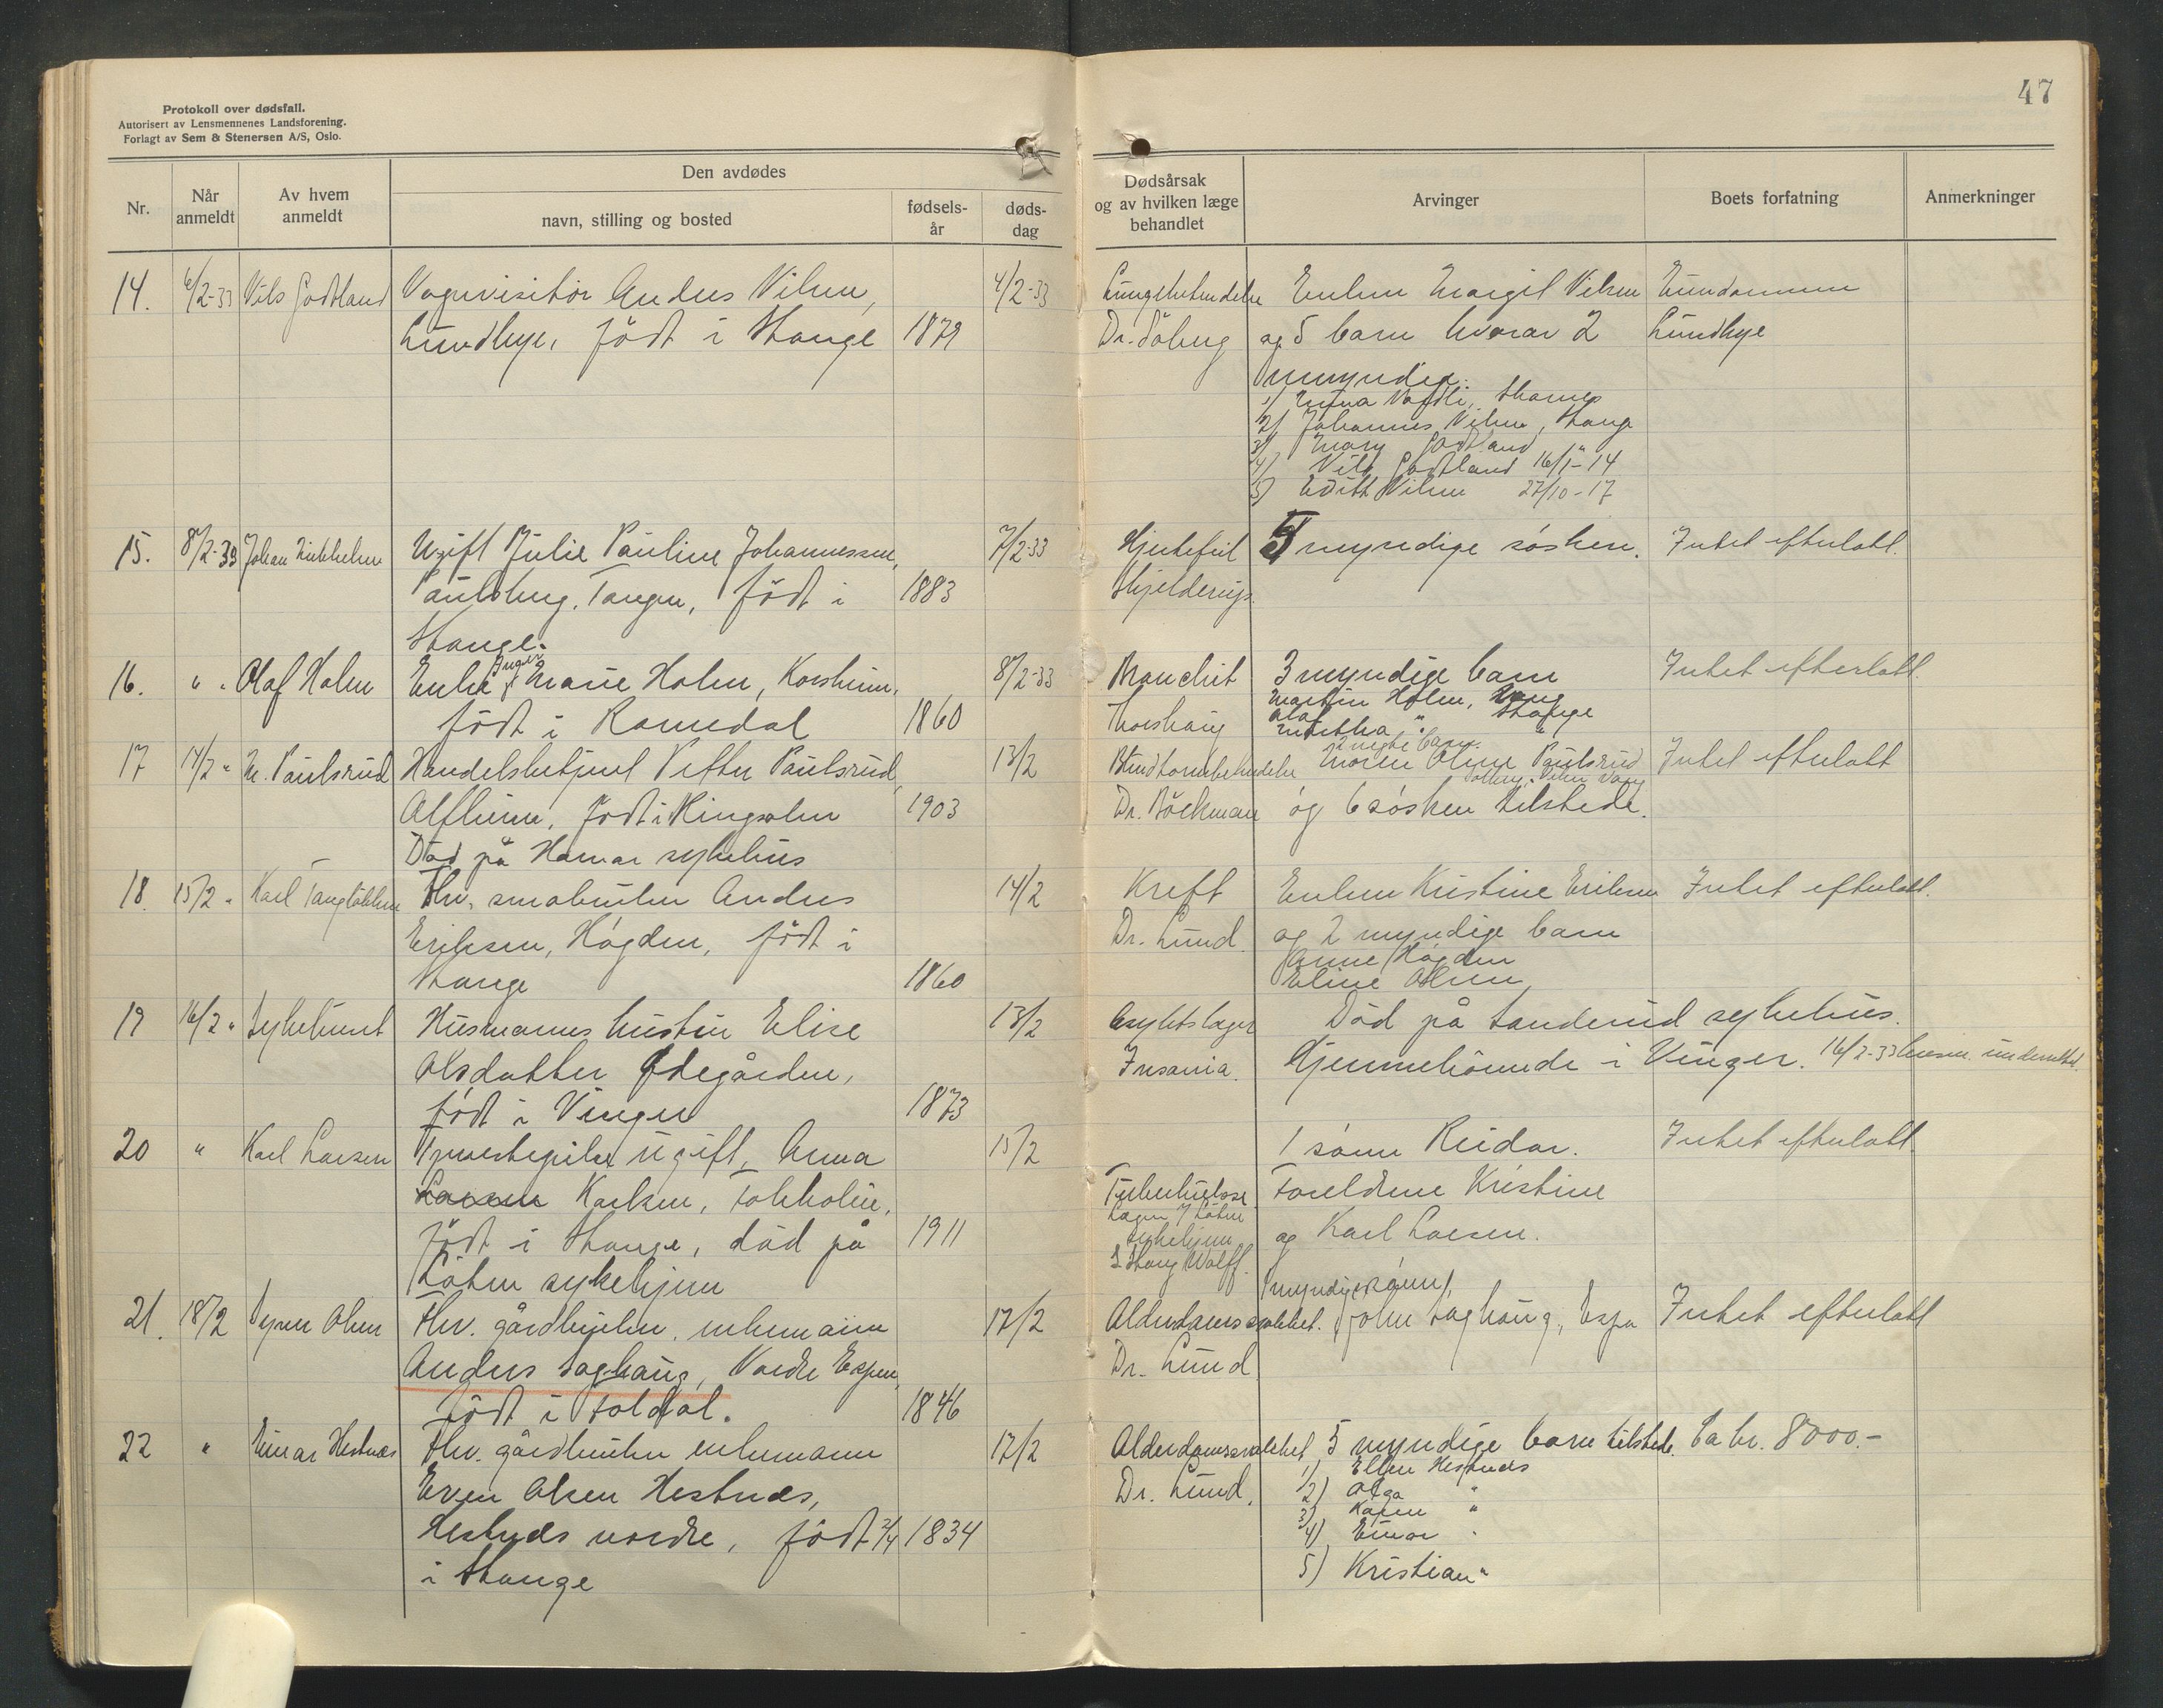 47
Protokoll over dødsfall.
Autorisert av Lensmennenes Landsforening.
Forlagt av Sem & Stenersen A/S, Oslo.
Nr.
Når anmeldt
Av hvem anmeldt
Den avdødes
navn, stilling og bosted
fødsels-
år
døds-
dag
Dødsårsak
og av hvilken læge
behandlet
Arvinger
Boets forfatning
Anmerkninger
14. 6/2-33 Nils Godtland Vognvisitør Anders Nilsen, 4/2-33 Lungebetendelse Enken Margit Nilsen Eiendommen
Lundbye, født i Stange 1879 Dr. og 5 barn hvorav 2 Lundbye
umyndig.
1)
2) Johannes Nilsen, Stange
3) Mary Godtland "
4) Nils Godtland 16/1-14
5) Edith Nilsen 27/10-17
15. 8/2-33 Johan Ugift Julie Pauline Johannessen, 7/2-33 Hjertefeil 5 myndige søsken. Intet efterlatt.
Tangen, født i 1883 Skjelderup.
Stange.
16. " " Olaf Holen Enke Inger Marie Holen, 8/2-33 Bronchit 3 myndige barn Intet efterlatt.
født i Romedal 1860 Martin Holen, Stange
Olaf "
17 14/2 " M. Paulsrud Handelsbetjent Petter Paulsrud, 13/2 Moren Oline Paulsrud Intet efterlatt
Alfheim, født i Ringsaker 1903 Dr. Böckman og 6 søsken tilstede.
Død på Hamar sykehus
18. 15/2 " Karl Fhv. småbruker Anders 14/2 Kreft Enken Kristine Eriksen Intet efterlatt.
Eriksen, Høgden, født i Dr. Lund og 2 myndige barn
Stange 1860 Anne Høgden
Eline Olsen
19 16/2 " Sykehuset Husmanns hustru Elise 13/2 Asylets læger Død på Sanderud sykehus.
Olsdatter Ødegården, Insania. Hjemmehørende i Vinger. 16/2-33
født i Vinger 1873
20 " Karl Larsen Tjenestepike ugift, Anna 15/2 1 sønn Reidar. Intet efterlatt.
Larsen Karlsen, født i Stange, død på 1911 Tuberkulose Foreldrene Kristine
Løten sykehjem og Karl Larsen.
21. 18/2 Syver Olsen Fhv. gårdbruker, enkemann 17/2 Alderdomssvakhet. (myndig sønn), John Saghaug, Espa Intet efterlatt
Anders Saghaug, Nordre Espen, Dr. Lund
født i Foldal. 1846
22 " Einar Hestnæs Fhv. gårdbruker enkemann 17/2 Alderdomssvakhet 5 myndige barn tilstede. Ca kr. 8000.-
Even Olsen Hestnæs, Dr. Lund. 1) Ellen Hestnæs
2) Olga "
Hestnæs nordre, født 2/4 1834 3) Karen "
4) Einar "
i Stange 5) Kristian "